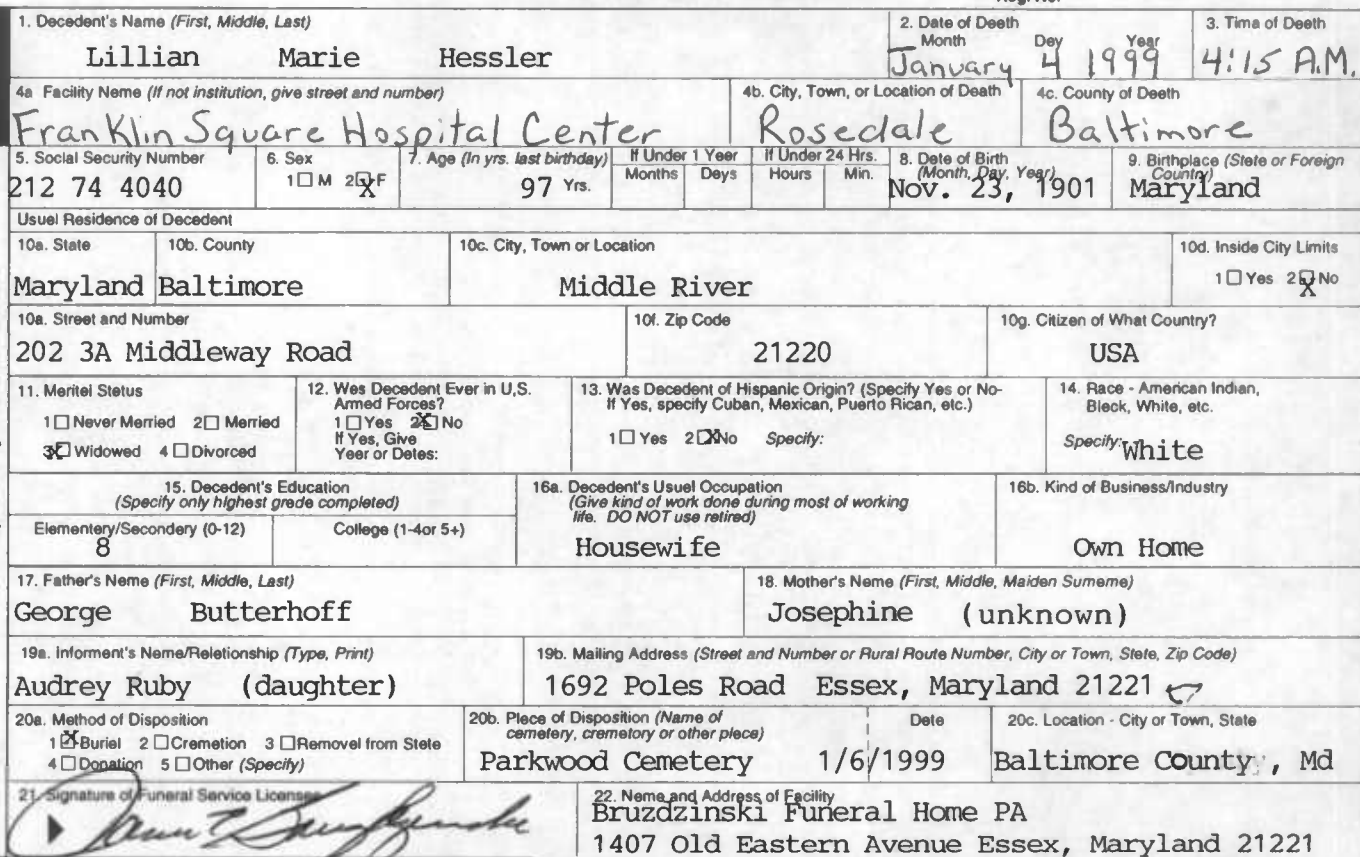 1. Decedent's Name (First, Middle, Last)
Lillian Marie Hessler
2. Date of Deeth
Month Dey Year
January 4 1999
3. Tima of Deeth
4:15 A.M.
4a Facility Name (If not institution, give street and number)
Franklin Square Hospital Center
4b. City, Town, or Location of Death
Rosedale
4c. County of Deeth
Baltimore
5. Social Security Number
212 74 4040
6. Sex
1 ☐ M 2 ☒ F
7. Age (In yrs. last birthday)
97 Yrs.
If Under 1 Year
Months Deys
If Under 24 Hrs.
Hours Min.
8. Date of Birth
(Month, Day, Year)
Nov. 23, 1901
9. Birthplace (Stete or Foreign
Country)
Maryland
Usuel Residence of Decedent
10a. State
Maryland
10b. County
Baltimore
10c. City, Town or Location
Middle River
10d. Inside City Limits
1 ☐ Yes 2 ☒ No
10a. Street and Number
202 3A Middleway Road
10f. Zip Code
21220
10g. Citizen of What Country?
USA
11. Meritel Stetus
1 ☐ Never Merried 2 ☐ Merried
3 ☒ Widowed 4 ☐ Divorced
12. Wes Decedent Ever in U,S.
Armed Forces?
1 ☐ Yes 2 ☒ No
If Yes, Give
Yeer or Detes:
13. Was Decedent of Hispanic Origin? (Specify Yes or No-
If Yes, specify Cuban, Mexican, Puerto Rican, etc.)
1 ☐ Yes 2 ☒ No Specify:
14. Race - American Indian,
Bleck, White, etc.
Specify: White
15. Decedent's Education
(Specify only highest grede completed)
Elementery/Secondery (0-12)
8
College (1-4or 5+)
16a. Decedent's Usuel Occupation
(Give kind of work done during most of working
life. DO NOT use retired)
Housewife
16b. Kind of Business/Industry
Own Home
17. Father's Name (First, Middle, Last)
George Butterhoff
18. Mother's Name (First, Middle, Maiden Sumeme)
Josephine (unknown)
19a. Informent's Neme/Reletionship (Type, Print)
Audrey Ruby (daughter)
19b. Mailing Address (Street and Number or Rural Route Number, City or Town, Stete, Zip Code)
1692 Poles Road Essex, Maryland 21221
20a. Method of Disposition
1 ☒ Buriel 2 ☐ Cremetion 3 ☐ Removel from Stete
4 ☐ Donation 5 ☐ Other (Specify)
20b. Plece of Disposition (Name of
cemetery, cremetory or other plece)
Parkwood Cemetery
Dete
1/6/1999
20c. Location - City or Town, State
Baltimore County, Md
21. Signature of Funeral Service Licensee
22. Neme and Address of Facility
Bruzdzinski Funeral Home PA
1407 Old Eastern Avenue Essex, Maryland 21221